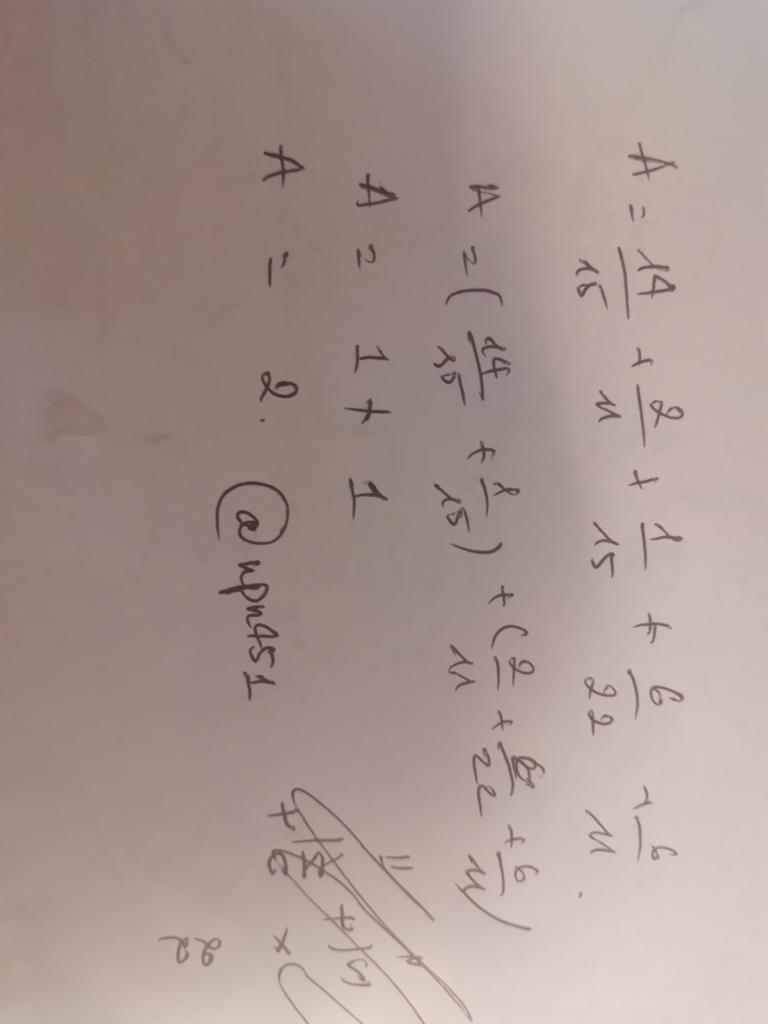 A = 14/15 + 2/11 + 1/15 + 6/22 + 6/11.
A = (14/15 + 1/15) + (2/11 + 6/22 + 6/11)
A = 1 + 1
A = 2. @npn451
22